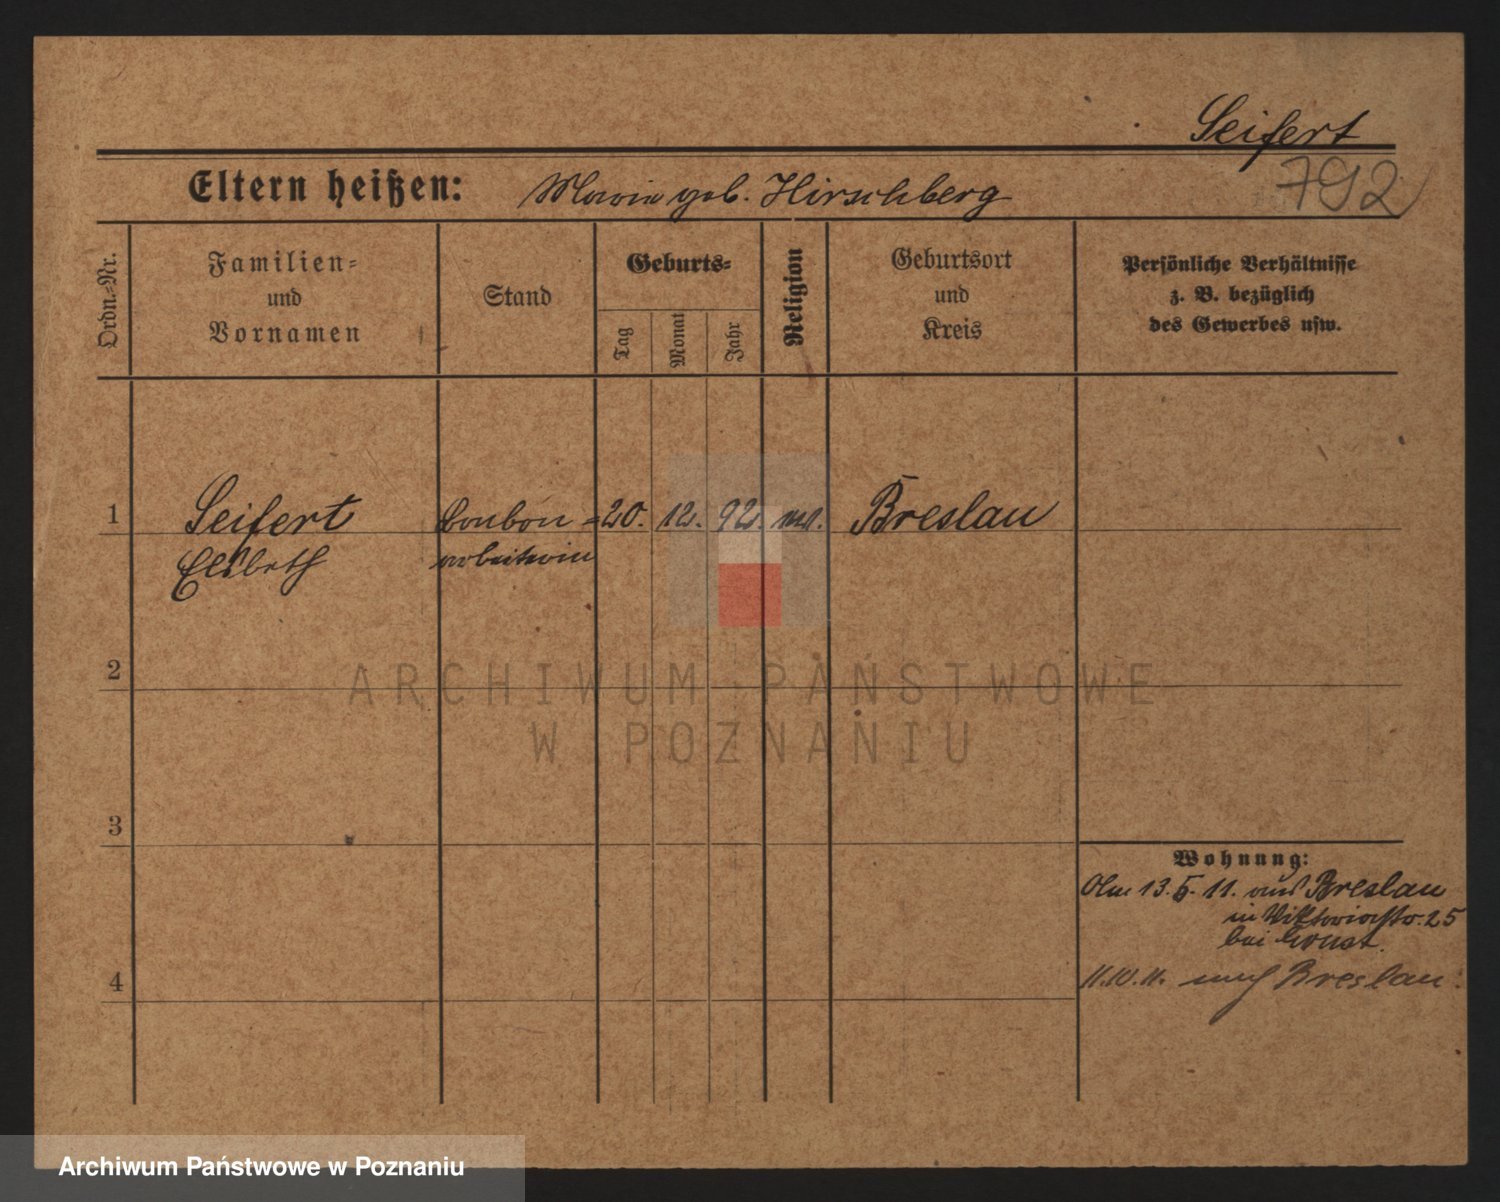 Seifert
792
Eltern heißen: Maria geb. Hirschberg
Ordn.-Nr.
Familien-
und
Vornamen
Stand
Geburts-
Tag
Monat
Jahr
Religion
Geburtsort
und
Kreis
Persönliche Verhältnisse
z. B. bezüglich
des Gewerbes usw.
1 Seifert Bonbon- 20. 12. 92. Breslau
Elsbeth arbeiterin
2
3
4
Wohnung:
13. 5. 11. aus Breslau
in Viktoriastr. 25
bei Ernst.
11.10.11. nach Breslau.
ARCHIWUM PAŃSTWOWE
W POZNANIU
Archiwum Państwowe w Poznaniu